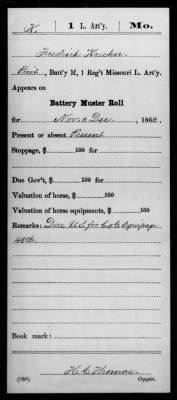 K. 1 L. Art'y. Mo.
Fredrick Kucker
Privt., Batt'y M, 1 Reg't Missouri L. Art'y.
Appears on
Battery Muster Roll
for Nov & Dec, 1862.
Present or absent Present
Stoppage, $ 100 for
Due Gov't, $ 100 for
Valuation of horse, $ 100
Valuation of horse equipments, $ 100
Remarks: Due U.S. for C & G Equipage
48
Book mark:
H. C. Thomas
(858) Copyist.